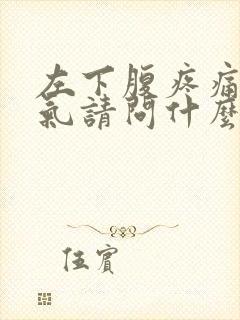 左下腹疼痛
氣請問什麼
伍賓